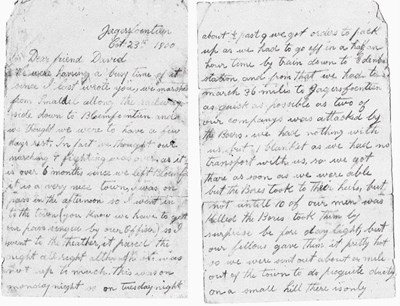 Jagersfontein
Oct 23rd 1900
Dear friend David
having a busy time of it
since I last wrote you, we marched
from along the railway
side down to Bloemfontein and
we thought we were to have a few
days rest. In fact we thought our
marching & fighting was over as it
is over 6 months since we left Bloemfn
it is a very nice town, I was on
pass in the afternoon so I went in
to the town (you know we have to get
our pass signed by our Officer) so I
went to the theather, it parced the
night all right although it was
not up to much. This was on
monday night so on tuesday night
about ½ past 9 we got orders to pack
up as we had to go off in a half an
hour time by train down to Edenburg
station and from that we had to
march 36 miles to Jagersfontein
as quick as possible as two of
our companys was attacked by
the Boers. we had nothing with
us but 1 blanket as we had no
transport with us, so we got
there as soon as we were able
but the Bores took to their heels, but
not untill 10 of our men was
killed the Bores took them by
surprise be for daylight, but
our fellows gave them it pretty hot
so we were sent out about a mile
out of the town to do duty
on a small hill there is only